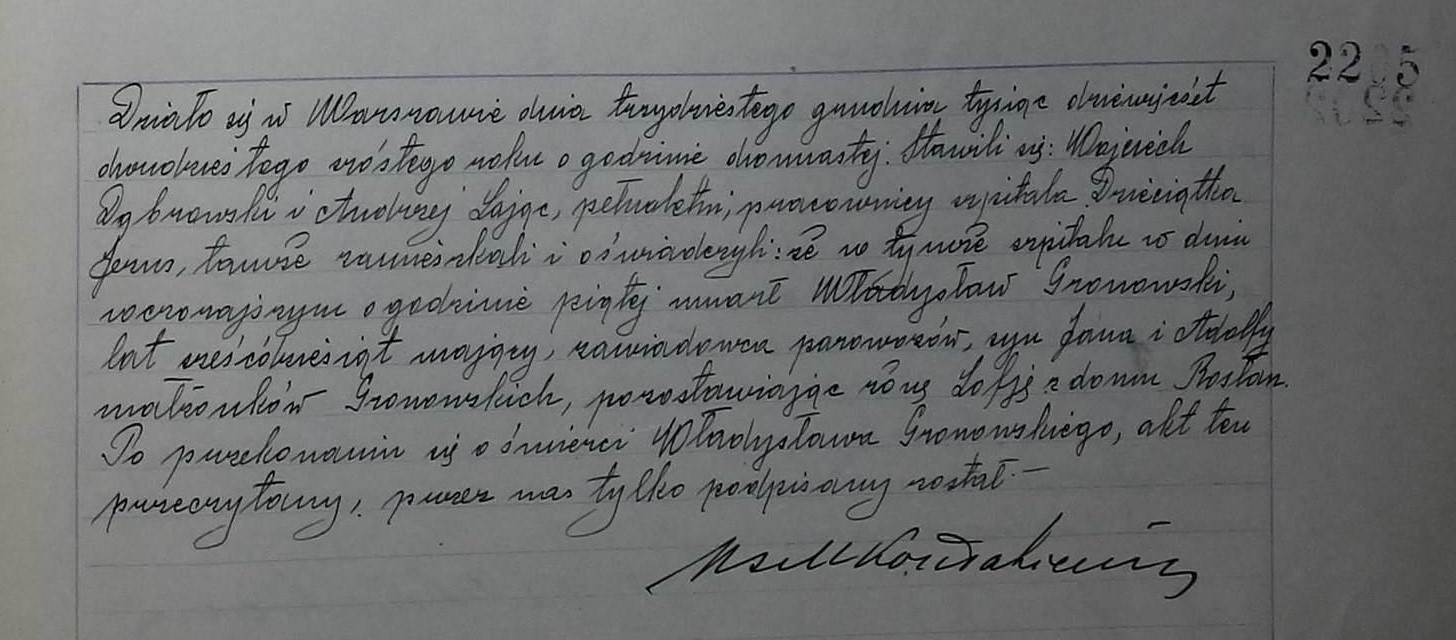 2205
Działo się w Warszawie dnia trzydziestego grudnia tysiąc dziewięćset
dwudziestego szóstego roku o godzinie dwunastej. Stawili się: Wojciech
Dąbrowski i Andrzej Zając, pełnoletni, pracownicy szpitala Dzieciątka
Jezus, tamże zamieszkali i oświadczyli: że w tymże szpitalu w dniu
wczorajszym o godzinie piątej umarł Władysław Gronowski,
lat sześćdziesiąt mający, zawiadowca parowozów, syn Jana i Adolfy
małżonków Gronowskich, pozostawiając żonę Zofję z domu Rosłan.
Po przekonaniu się o śmierci Władysława Gronowskiego, akt ten
przeczytany, przez nas tylko podpisany został.—